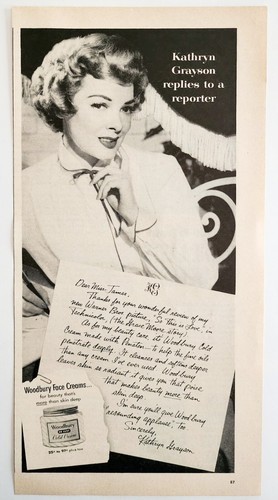 Kathryn
Grayson
replies to a
reporter
Dear Miss James,
Thanks for your wonderful review of my
new Warner Bros. picture, "So This is Love", in
Technicolor, (the Grace Moore story).
As for my beauty care, it's Woodbury Cold
Cream made with Penaten — to help the fine oils
penetrate deeply. It cleanses and softens deeper
than any cream I've ever used. Woodbury
leaves skin so radiant it gives you that poise
that makes beauty more than
skin deep.
I'm sure you'll give Woodbury
"resounding applause", too
Sincerely,
Kathryn Grayson
Woodbury Face Creams...
for beauty that's
more than skin deep
Woodbury
Cold Cream